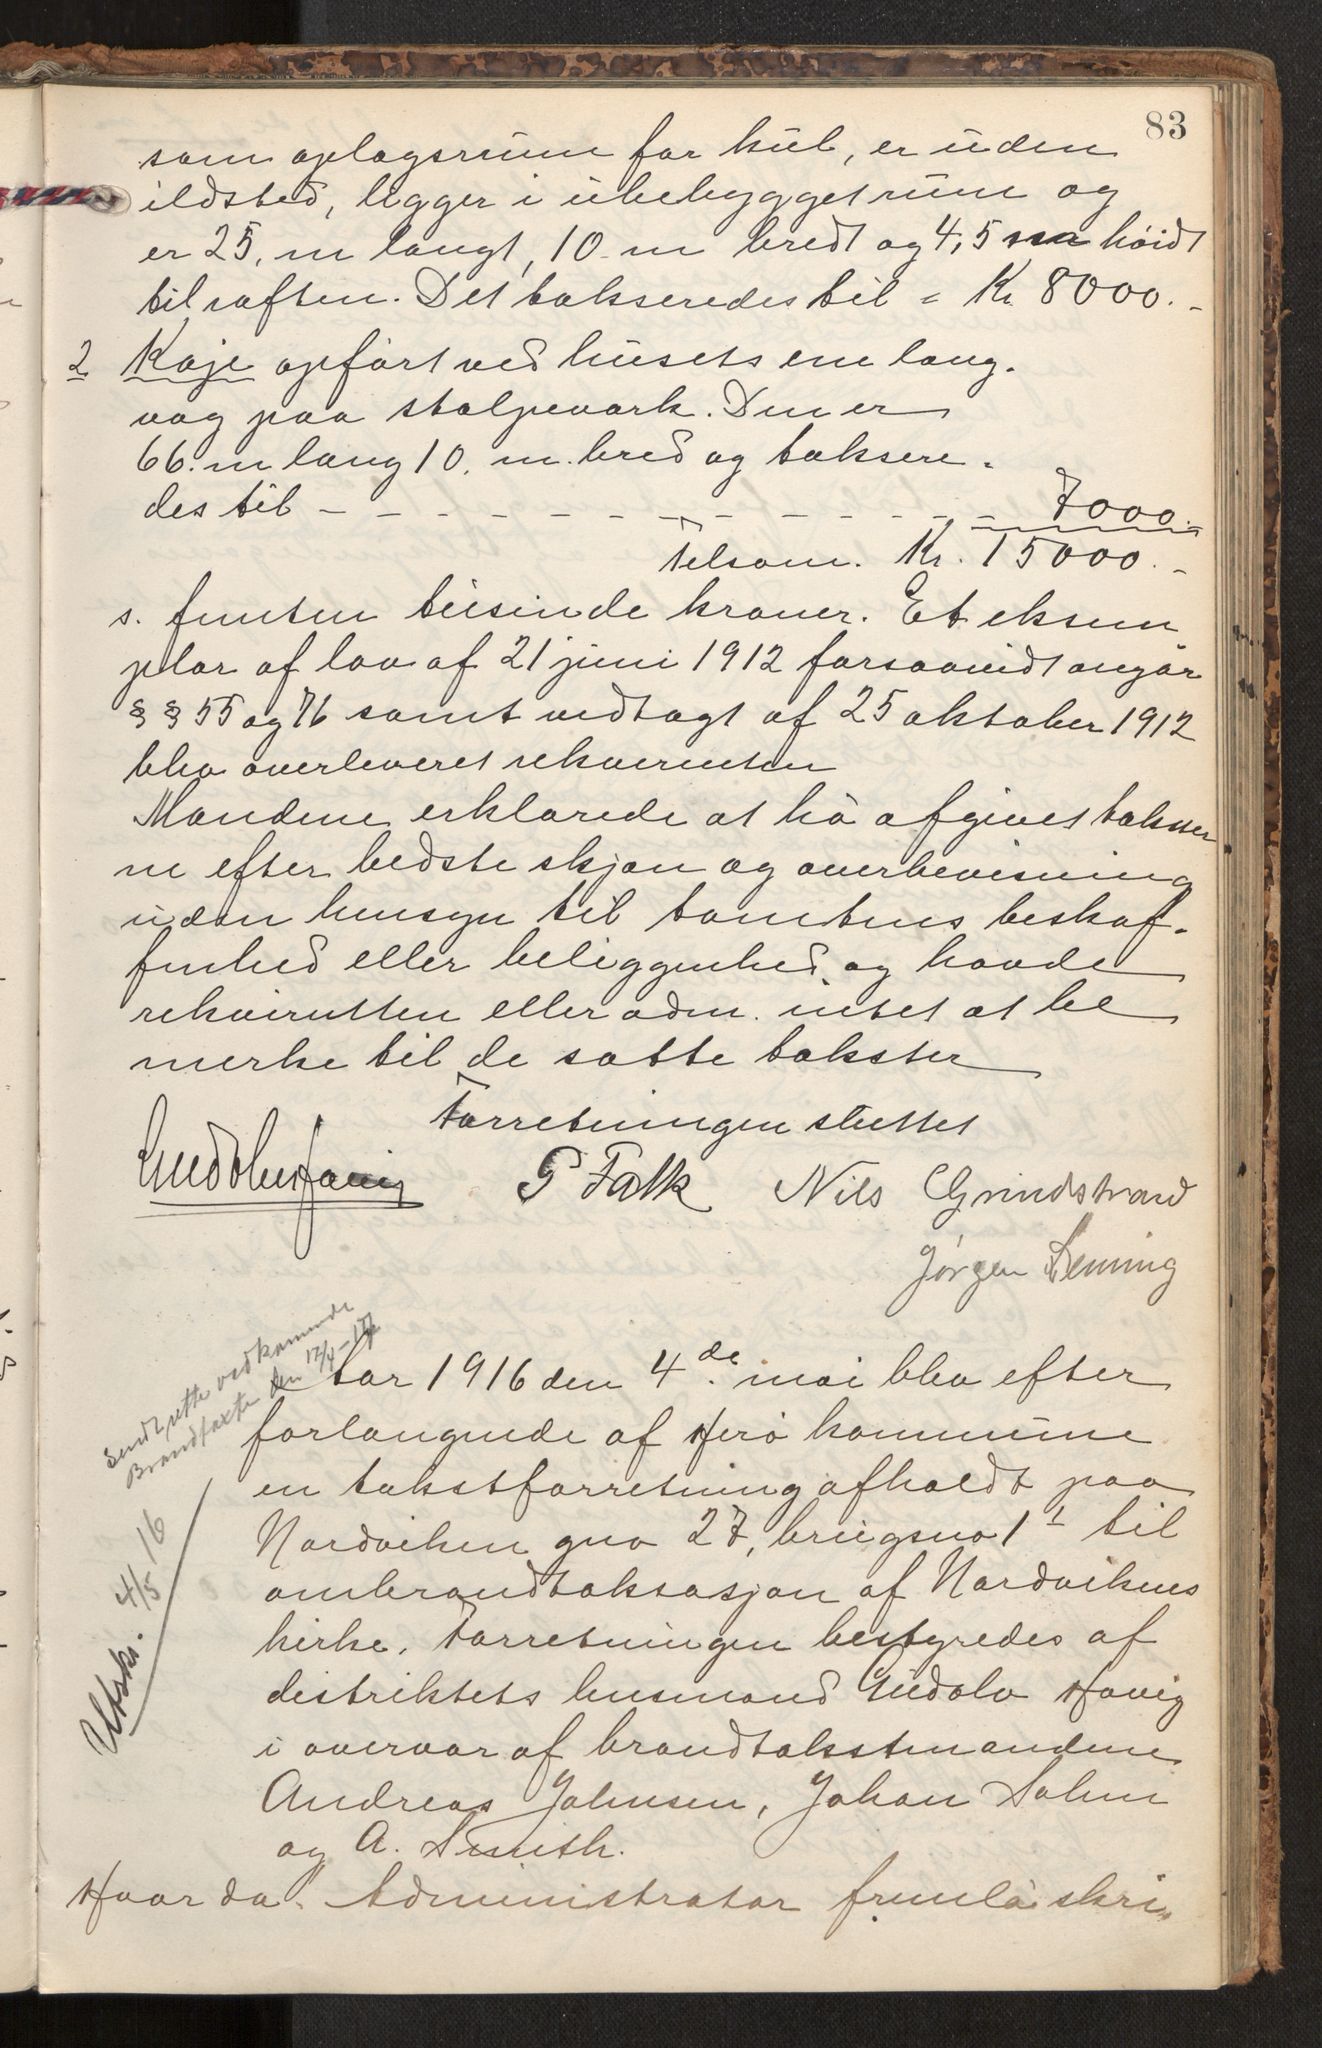 83
som oplagsrum for kul, er uden
ildsted, ligger i ubebygget rum og
er 25, m langt, 10 m bredt og 4,5 m høidt
til raften. Det takseredes til = Kr. 8000.-
2 Kaje opført ved husets ene lang-
væg paa stolpeværk. Den er
66. m lang 10. m. bred og taksere-
des til - - - - - - - - - - - - 7000.-
Tilsam. Kr. 15000.-
s. femten tusinde kroner. Et eksem
plar af lov af 21 juni 1912 forsaavidt angår
§§ 55 og 76 samt vedtægt af 25 oktober 1912
blev overleveret rekvirenten
Mændene erklærede at ha afgivet takster
ne efter bedste skjøn og overbevisning
uden hensyn til tomtens beskaf-
fenhed eller beliggenhed og havde
rekvirenten eller adm. intet at be
merke til de satte takster
Forretningen sluttet
Gudolv Havig P Falk Nils Grindstrand
Jørgen Lenning
Sendt rette vedkommende
Brandtakster den 12/4-17
Aar 1916 den 4de mai blev efter
forlangende af Herø kommune
en takstforretning afholdt paa
Nordviken gno 27, brugsno 1 til
ombrandtaksasjon af Nordvikens
kirke. Forretningen bestyredes af
distriktets lensmand Gudolv Havig
i overvær af brandtakstmændene
Andreas Johnsen, Johan Holm
og A. Smith.
Utskr. 4/5 16
Hvorda: Administrator fremla skri-